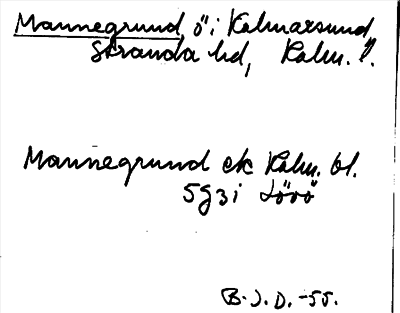 Mannegrund, ö i Kalmarsund,
Stranda hd, Kalm. l.
Mannegrund ek Kalm. bl.
5g3i Lövö
B. J. D. -55.